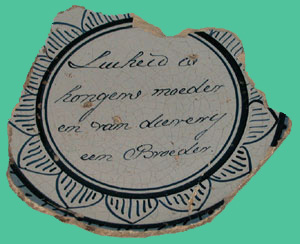 Luiheid is
hongers moeder
en van dievery
een Broeder.